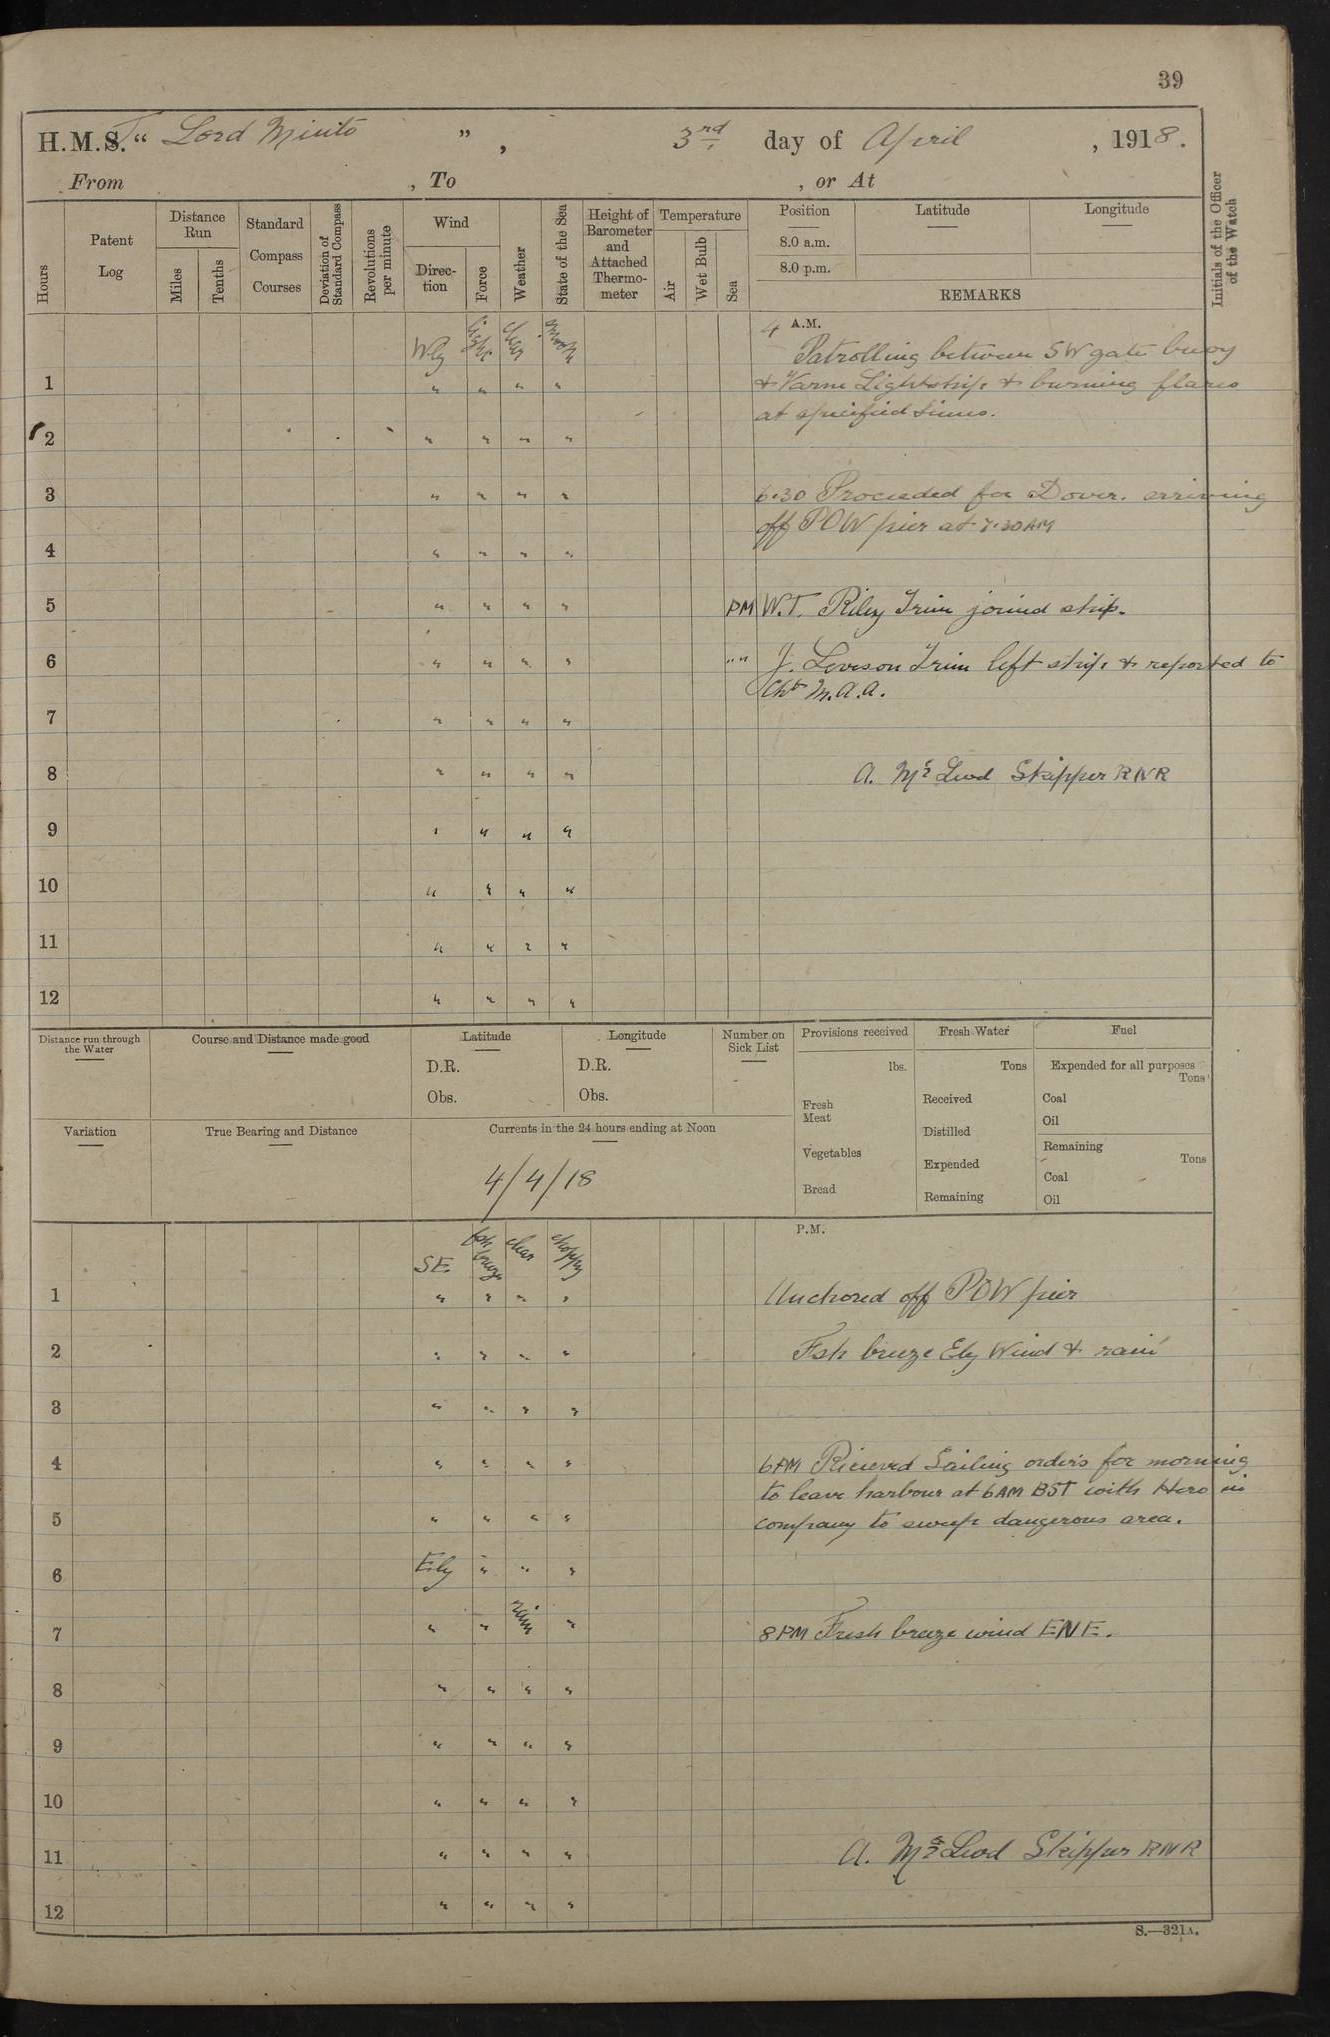 39
H.M.S. "T Lord Minto", 3rd day of April, 1918.
From , To , or At
Hours
Patent Log
Distance Run
Miles
Tenths
Standard Compass Courses
Deviation of Standard Compass
Revolutions per minute
Wind
Direction
Force
Weather
State of the Sea
Height of Barometer and Attached Thermometer
Temperature
Air
Wet Bulb
Sea
Position
8.0 a.m.
8.0 p.m.
Latitude
Longitude
REMARKS
Initials of the Officer of the Watch
Wly light clear smooth
4 A.M.
Patrolling between SW gate buoy
1 " " " " & Varne Lightship & burning flares
at specified times.
2 " " " "
3 " " " " 6.30 Proceeded for Dover. arriving
off POW pier at 7.30AM
4 " " " "
5 " " " " PM W.T. Riley Trim joined ship.
6 " " " " "" J. Leveson Trim left ship & reported to
Cht M.A.A.
7 " " " "
8 " " " " A. McLeod Skipper RNR
9 " " " "
10 " " " "
11 " " " "
12 " " " "
Distance run through the Water
Course and Distance made good
Latitude
D.R.
Obs.
Longitude
D.R.
Obs.
Number on Sick List
Provisions received
lbs.
Fresh Meat
Vegetables
Bread
Fresh Water
Tons
Received
Distilled
Expended
Remaining
Fuel
Expended for all purposes
Tons
Coal
Oil
Remaining
Tons
Coal
Oil
Variation
True Bearing and Distance
Currents in the 24 hours ending at Noon
4/4/18
P.M.
SE. fsh breeze clear choppy
1 " " " " Anchored off POW pier
2 " " " " Fsh breeze Ely Wind & rain
3 " " " "
4 " " " " 6PM Recieved Sailing orders for morning
to leave harbour at 6AM BST with Hero in
5 " " " " company to sweep dangerous area.
6 Ely " " "
7 " " rain " 8PM Fresh breeze wind ENE.
8 " " " "
9 " " " "
10 " " " "
11 " " " " A. McLeod Skipper RNR
12 " " " "
S.—321A.